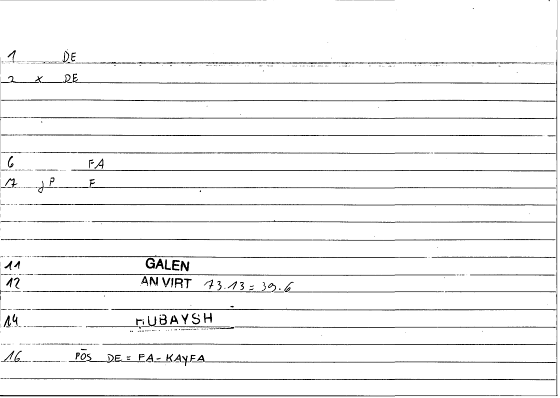 1 DE
2 x DE
6 FA
17 jP F
11 GALEN
12 AN VIRT 73.13 = 39.6
14 HUBAYSH
16 PŌS DE = FA-KAYFA